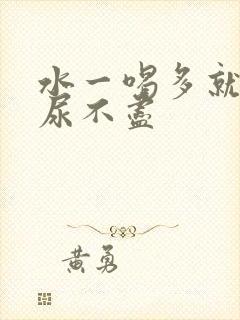 水一喝多就
尿不盡
黃勇